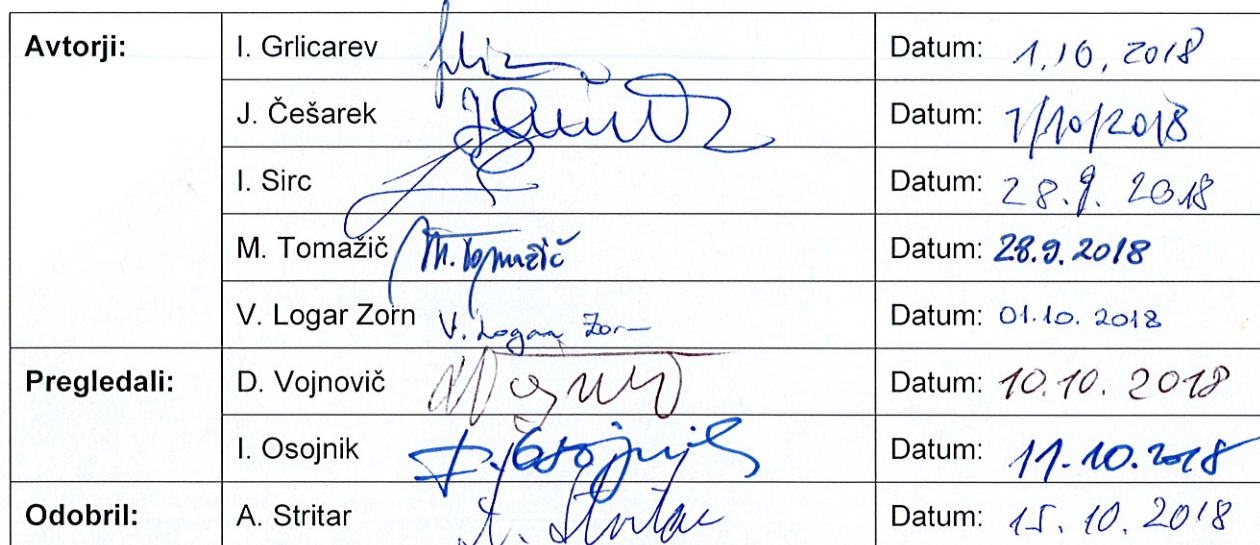 Avtorji: I. Grlicarev Datum: 1.10.2018
J. Češarek Datum: 1/10/2018
I. Sirc Datum: 28.9.2018
M. Tomažič M. Tomažič Datum: 28.9.2018
V. Logar Zorn V. Logar Zorn Datum: 01.10.2018
Pregledali: D. Vojnovič Datum: 10.10.2018
I. Osojnik I. Osojnik Datum: 11.10.2018
Odobril: A. Stritar A. Stritar Datum: 15.10.2018